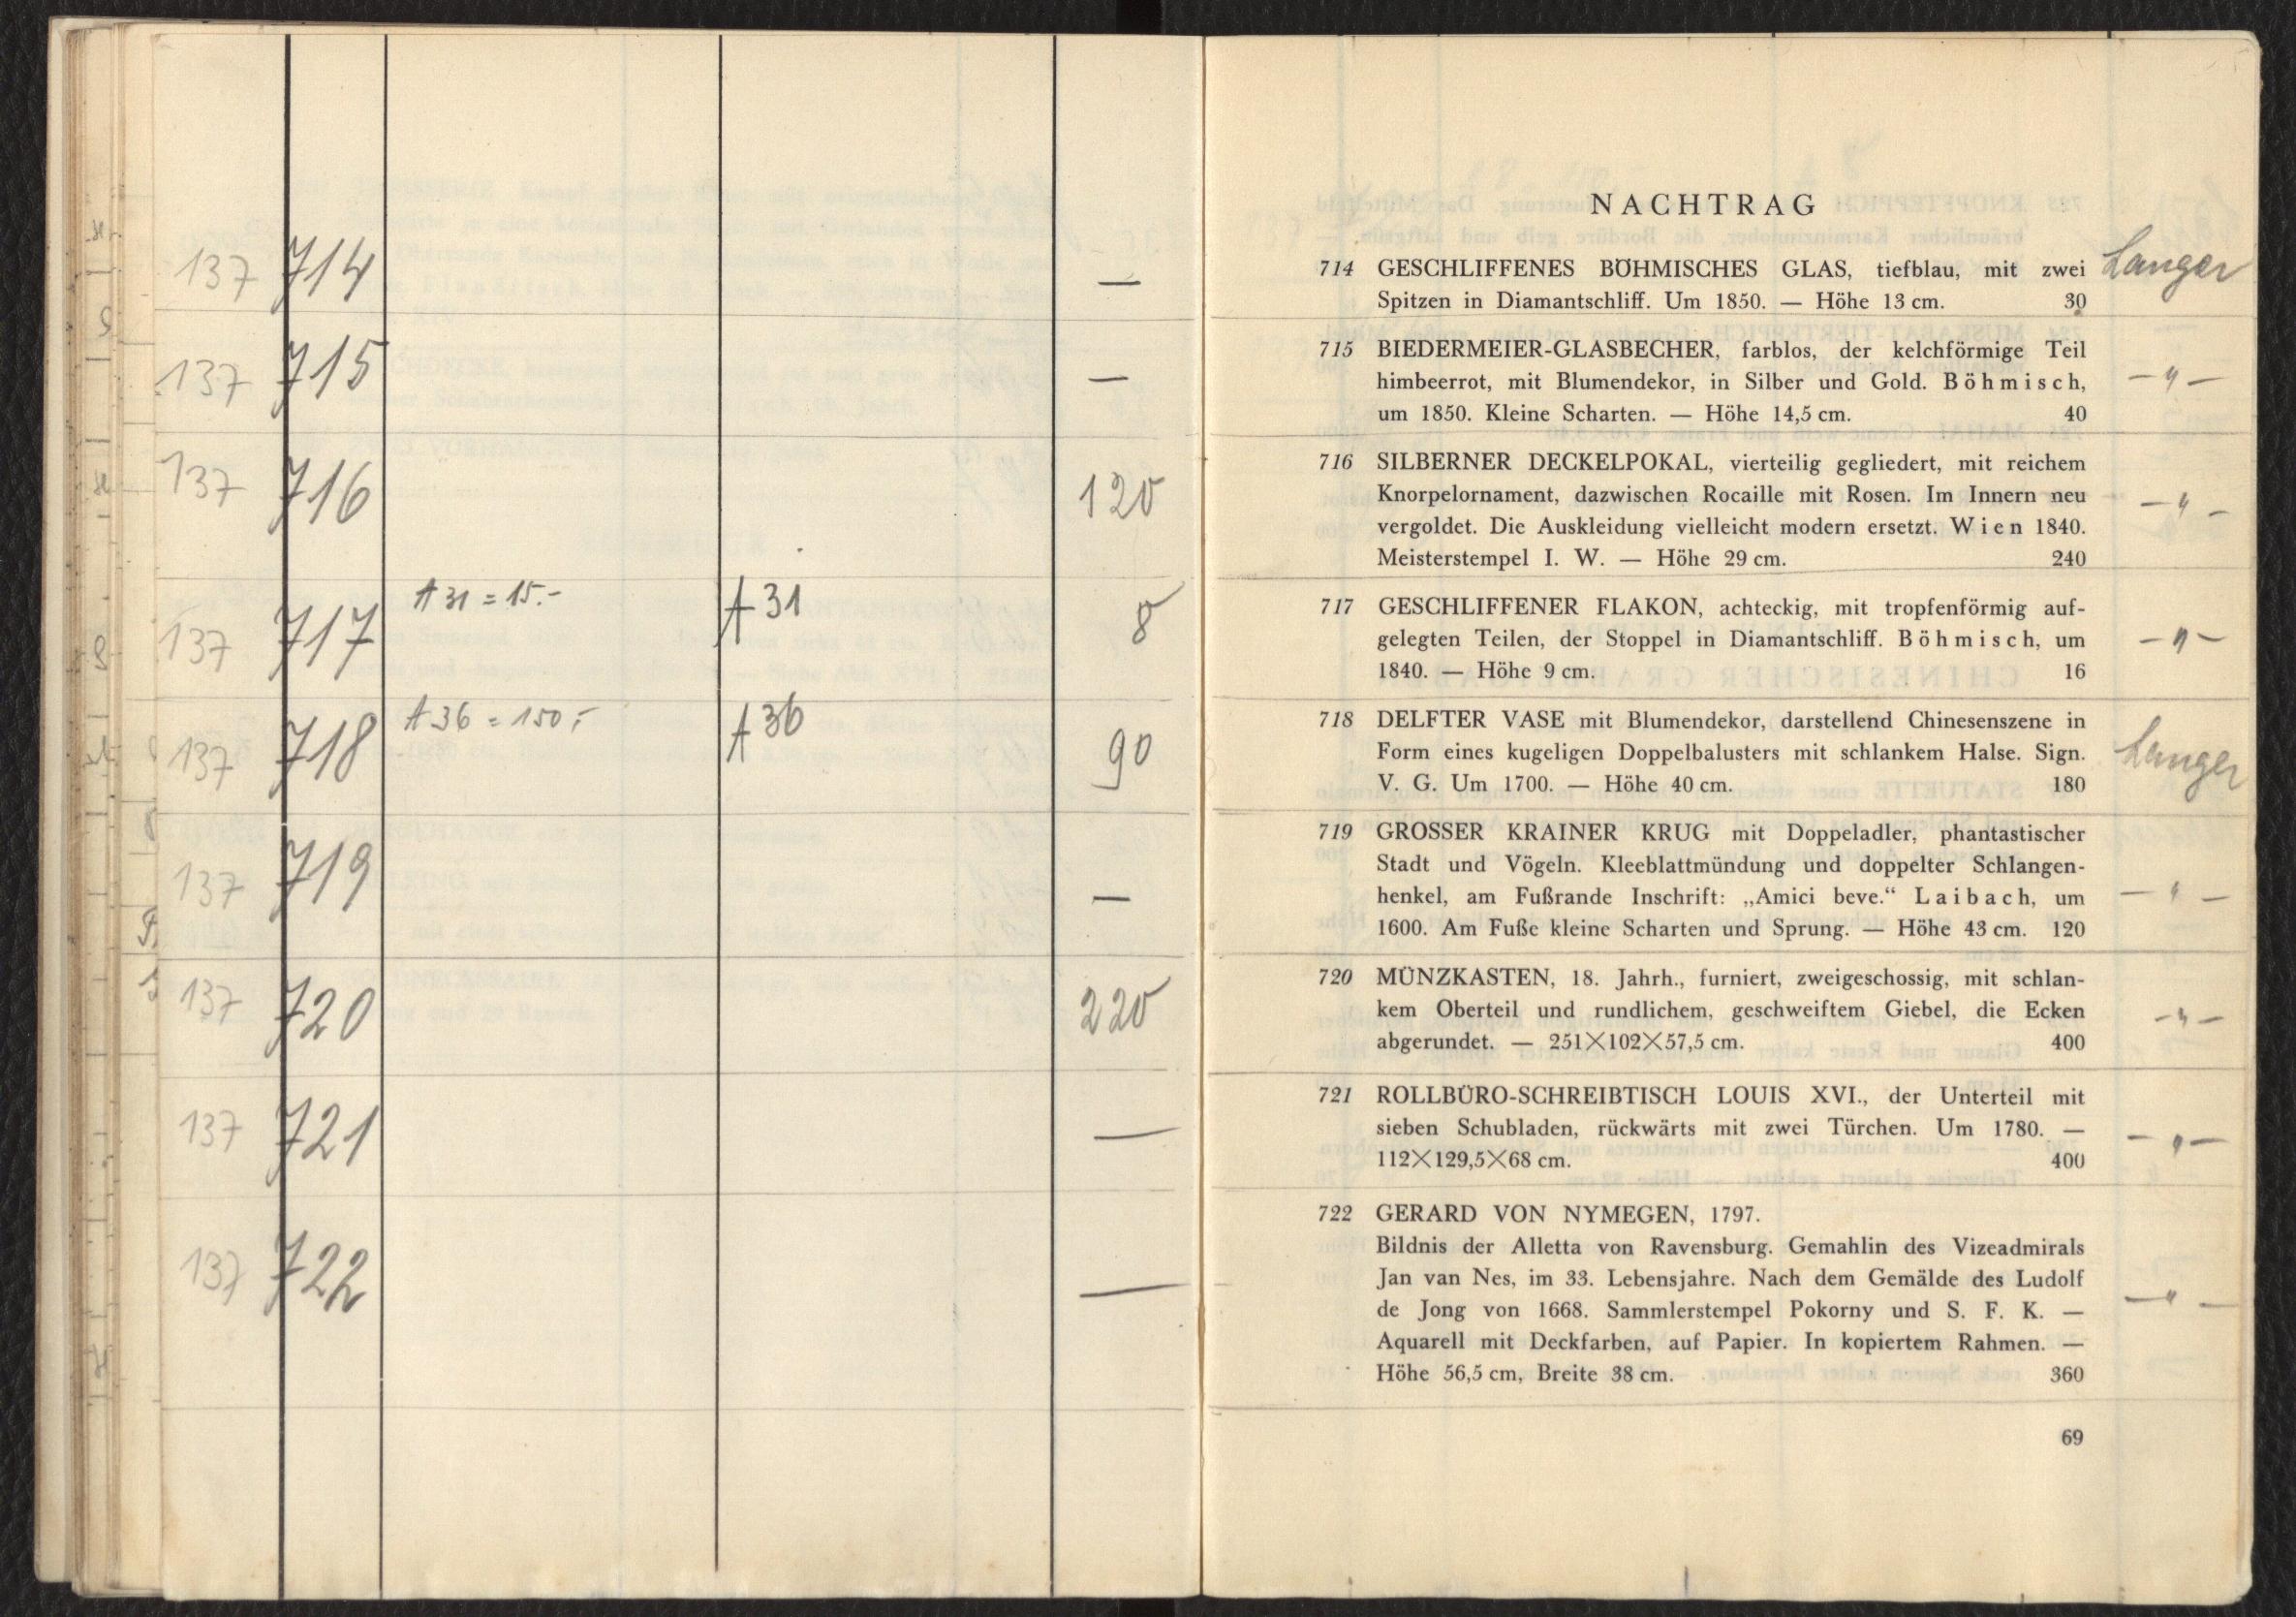 137 714 —
137 715 —
137 716 120
137 717 A 31 = 15.- A 31 8
137 718 A 36 = 150,- A 36 90
137 719 —
137 720 220
137 721 —
137 722 —
NACHTRAG
714 GESCHLIFFENES BÖHMISCHES GLAS, tiefblau, mit zwei Langer
Spitzen in Diamantschliff. Um 1850. — Höhe 13 cm. 30
715 BIEDERMEIER-GLASBECHER, farblos, der kelchförmige Teil
himbeerrot, mit Blumendekor, in Silber und Gold. Böhmisch, — " —
um 1850. Kleine Scharten. — Höhe 14,5 cm. 40
716 SILBERNER DECKELPOKAL, vierteilig gegliedert, mit reichem
Knorpelornament, dazwischen Rocaille mit Rosen. Im Innern neu — " —
vergoldet. Die Auskleidung vielleicht modern ersetzt. Wien 1840.
Meisterstempel I. W. — Höhe 29 cm. 240
717 GESCHLIFFENER FLAKON, achteckig, mit tropfenförmig auf-
gelegten Teilen, der Stoppel in Diamantschliff. Böhmisch, um — " —
1840. — Höhe 9 cm. 16
718 DELFTER VASE mit Blumendekor, darstellend Chinesenszene in
Form eines kugeligen Doppelbalusters mit schlankem Halse. Sign. Langer
V. G. Um 1700. — Höhe 40 cm. 180
719 GROSSER KRAINER KRUG mit Doppeladler, phantastischer
Stadt und Vögeln. Kleeblattmündung und doppelter Schlangen-
henkel, am Fußrande Inschrift: „Amici beve.“ Laibach, um — " —
1600. Am Fuße kleine Scharten und Sprung. — Höhe 43 cm. 120
720 MÜNZKASTEN, 18. Jahrh., furniert, zweigeschossig, mit schlan-
kem Oberteil und rundlichem, geschweiftem Giebel, die Ecken — " —
abgerundet. — 251×102×57,5 cm. 400
721 ROLLBÜRO-SCHREIBTISCH LOUIS XVI., der Unterteil mit
sieben Schubladen, rückwärts mit zwei Türchen. Um 1780. — — " —
112×129,5×68 cm. 400
722 GERARD VON NYMEGEN, 1797.
Bildnis der Alletta von Ravensburg. Gemahlin des Vizeadmirals
Jan van Nes, im 33. Lebensjahre. Nach dem Gemälde des Ludolf
de Jong von 1668. Sammlerstempel Pokorny und S. F. K. — — " —
Aquarell mit Deckfarben, auf Papier. In kopiertem Rahmen. —
Höhe 56,5 cm, Breite 38 cm. 360
69